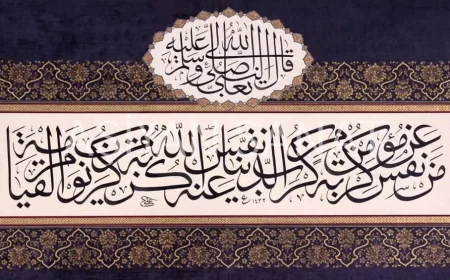 قال النبي صلى الله تعالى عليه وسلم
من نفس عن مؤمن كربة من كرب الدنيا نفس الله عنه كربة من كرب يوم القيامة
١٤٣٢